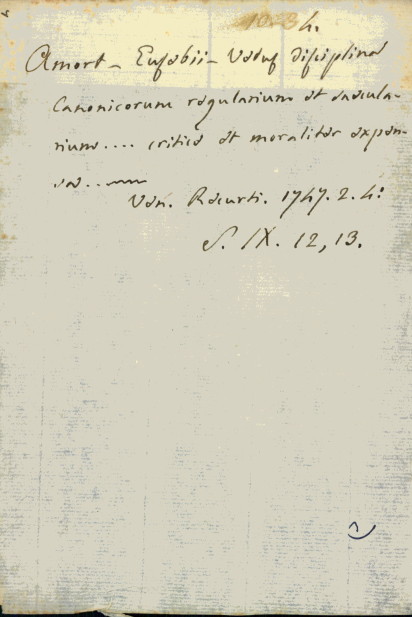 h.
Amort – Eusebii – Vetus disciplina
Canonicorum regularium et secula-
rium.... critice et moraliter expen-
sa...
Ven. Recurti. 1747. 2. 4:
S. IX. 12, 13.